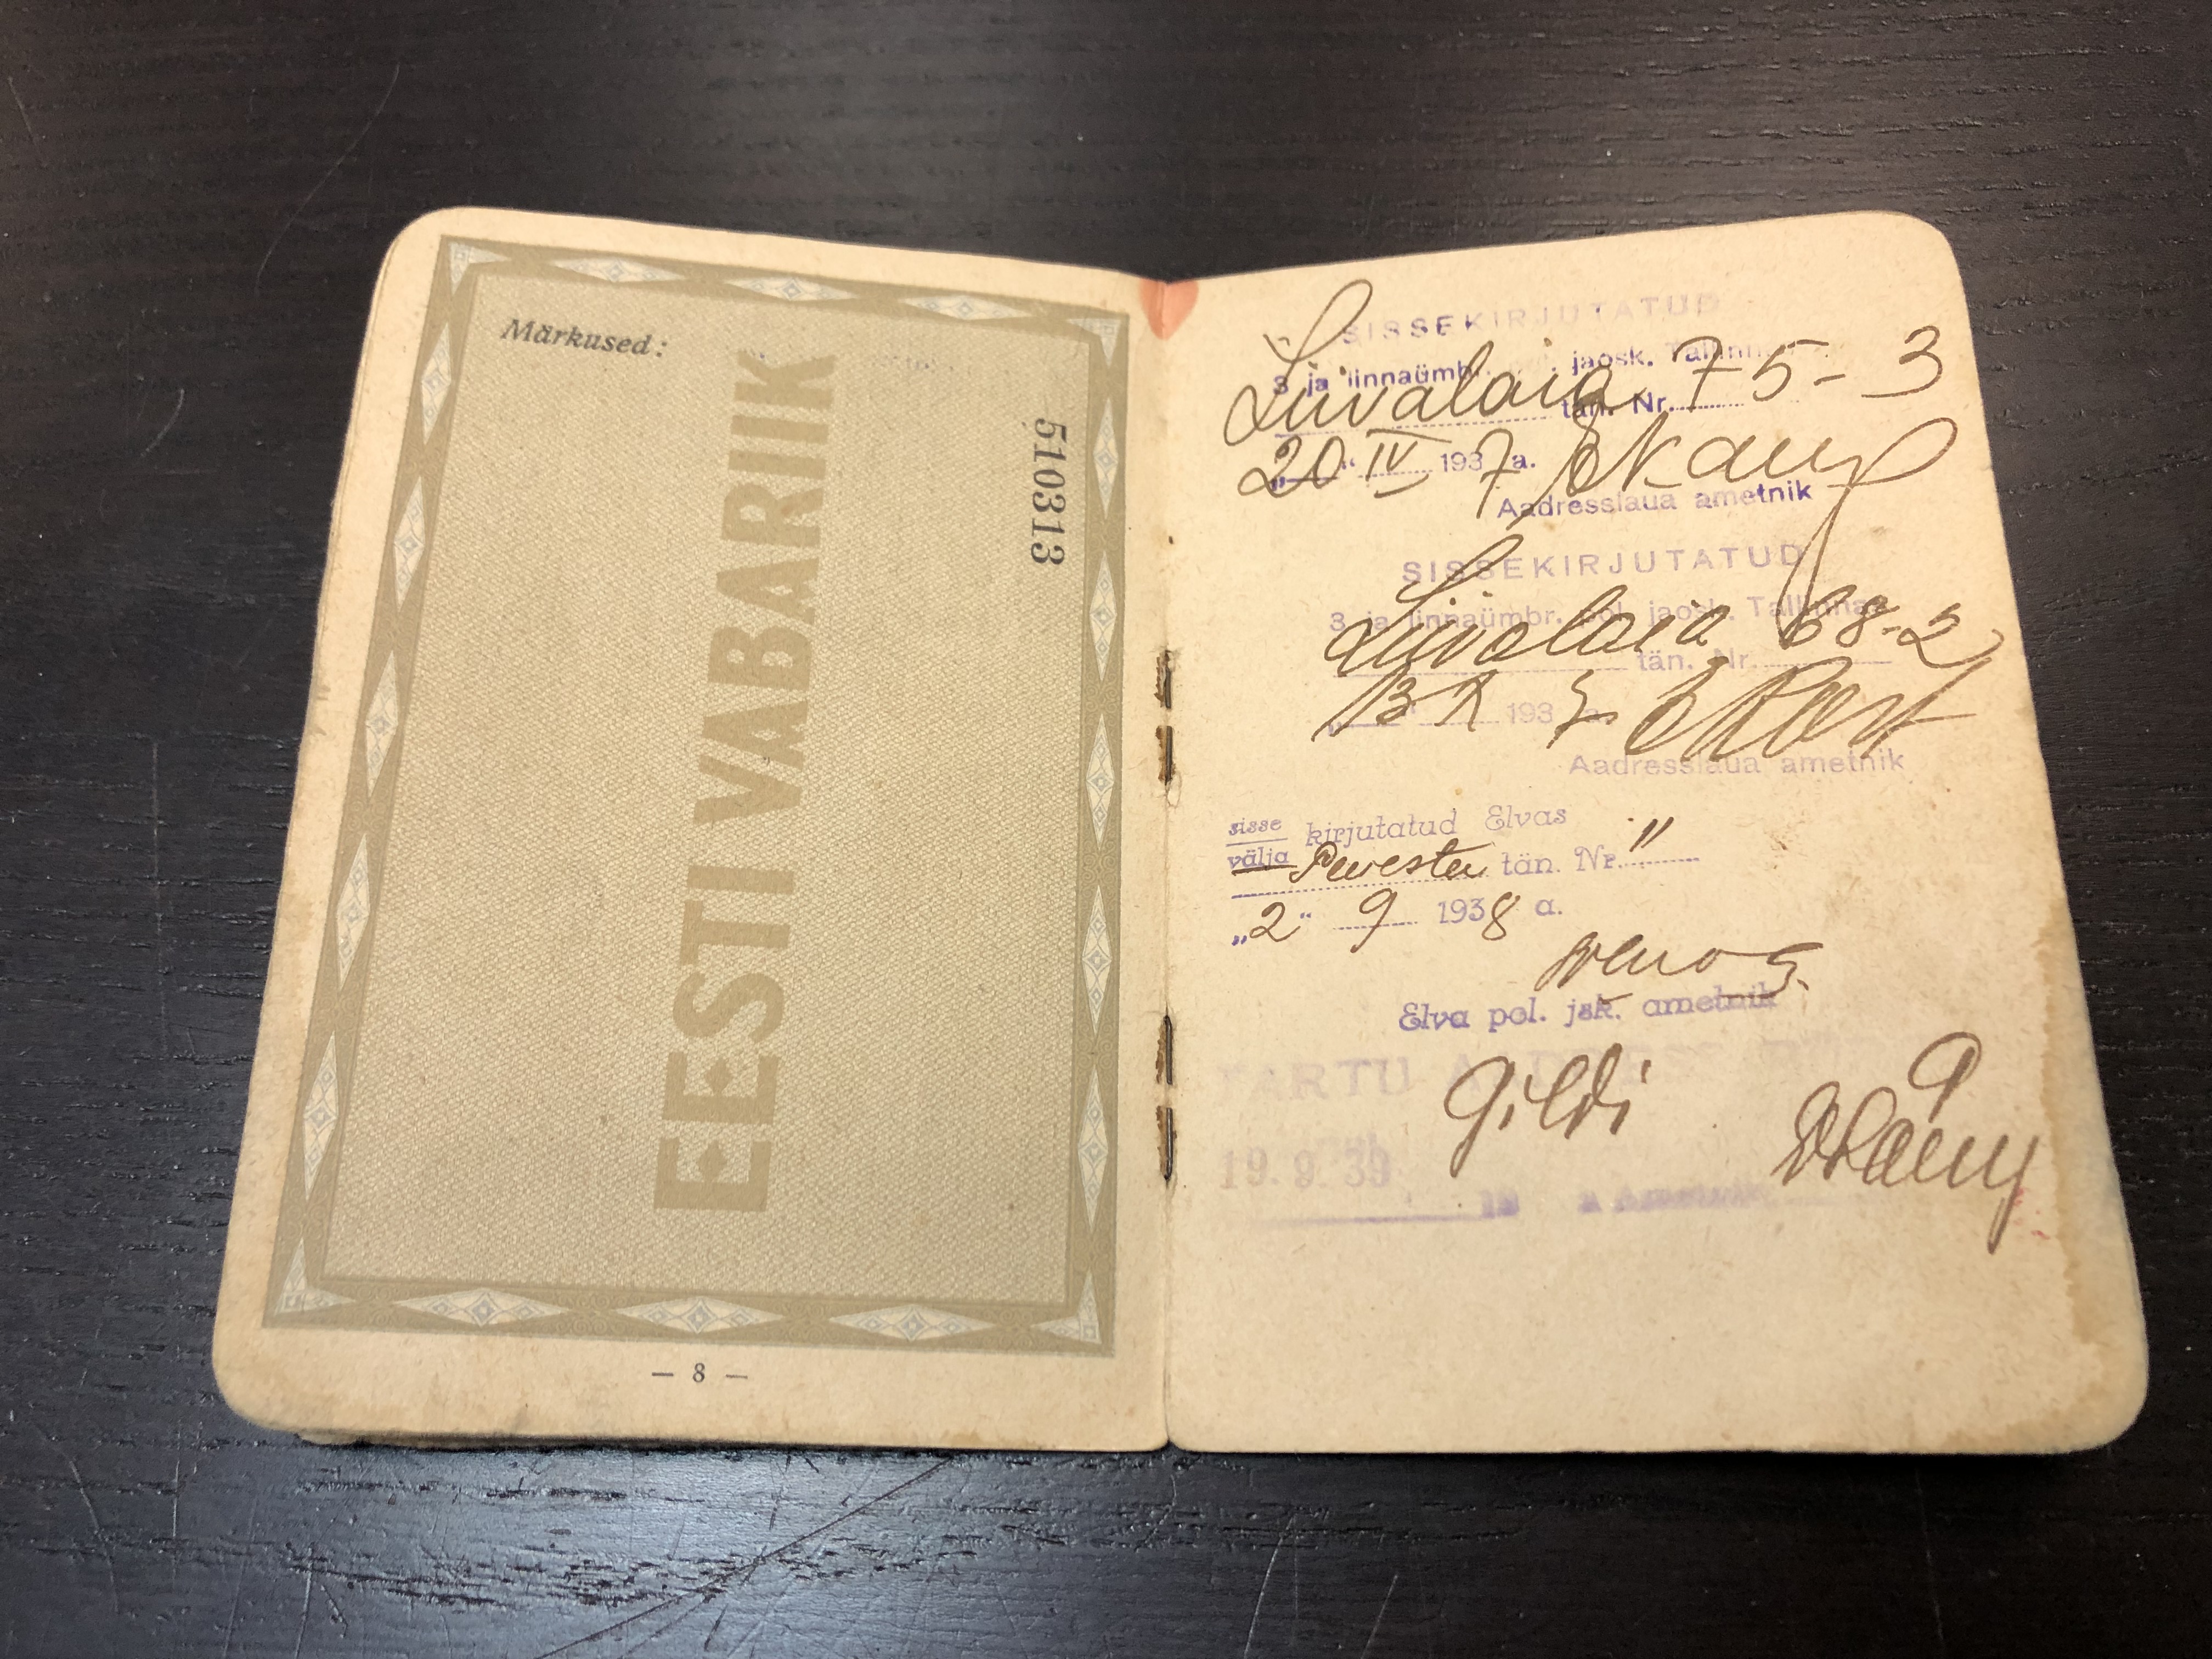 Märkused:
EESTI VABARIIK
510313
— 8 —
SISSEKIRJUTATUD
3 ja linnaümbr. jaosk. Tallinnas
Liivalaia tän. Nr. 75-3
„20“ IV 1937 a.
Aadresslaua ametnik
SISSEKIRJUTATUD
3 ja linnaümbr. pol. jaosk. Tallinnas
Liivalaia tän. Nr. 68-2
193 a.
Aadresslaua ametnik
sisse
välja
kirjutatud Elvas
tän. Nr. "
„2“ 9 1938 a.
Elva pol. jsk. ametnik
TARTU
Gildi
19. 9. 39
Ametnik